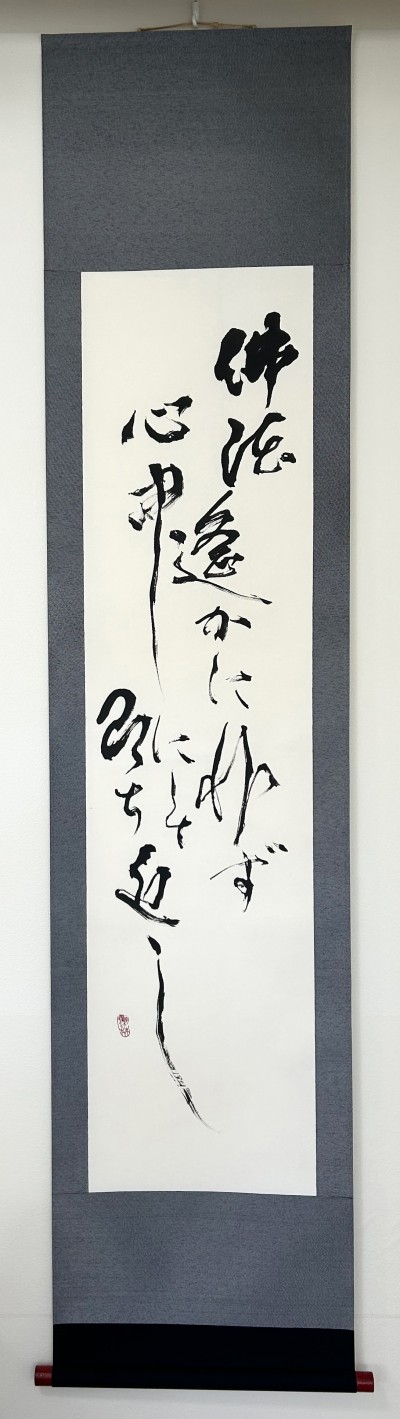 佛法遙かに非ず
心中にして
即ち近し